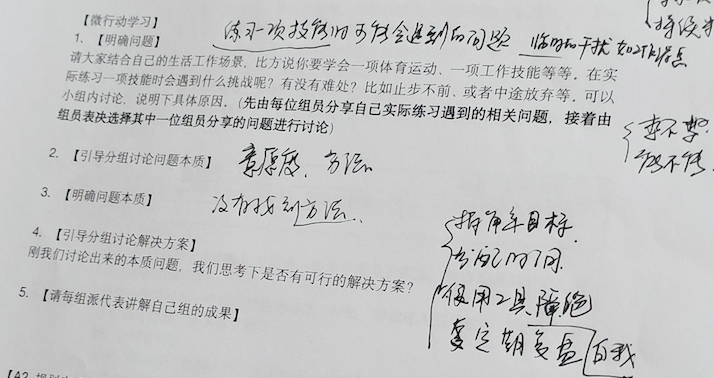 【微行动学习】
1. 【明确问题】 练习一项技能时可能会遇到的问题 临时的干扰 如时间
请大家结合自己的生活工作场景,比方说你要学会一项体育运动、一项工作技能等等。在实
际练习一项技能时会遇到什么挑战呢?有没有难处?比如止步不前、或者中途放弃等。可以
小组内讨论,说明下具体原因。(先由每位组员分享自己实际练习遇到的相关问题,接着由
组员表决选择其中一位组员分享的问题进行讨论)
愿不愿
能不能
2. 【引导分组讨论问题本质】 意愿度、方法
3. 【明确问题本质】 没有找到方法
4. 【引导分组讨论解决方案】
刚我们讨论出来的本质问题,我们思考下是否有可行的解决方案?
目标
使用工具
要定期复盘 自我
5. 【请每组派代表讲解自己组的成果】